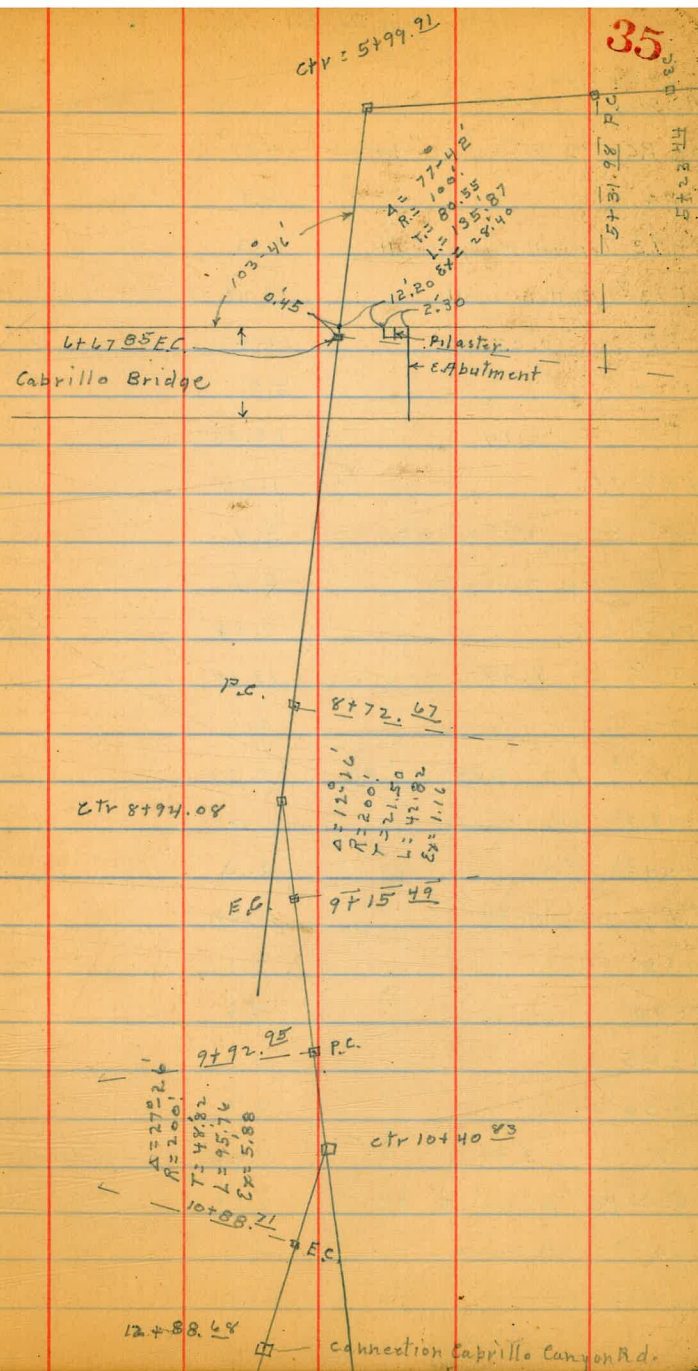 35
ctr = 5+99.91
5+31.98 P.C.
5+23 44
Δ = 77°-42'
R = 100'
T = 80.55
L = 135.87
Ex = 28.40
103°-46'
0.45
12.20
2.30
6+67 85 E.C.
Pilaster
E. Abutment
Cabrillo Bridge
P.C.
8+72.67
Δ=12°-16'
R=200'
T=21.50
L=42.82
Ex=1.16
ctr 8+94.08
E.C.
9+15 49
9+92.95
P.C.
Δ=27°-26'
R=200'
T=48.82
L=95.76
Ex=5.88
ctr 10+40 83
10+88.71
E.C.
12+88.68
Connection Cabrillo Canyon Rd.